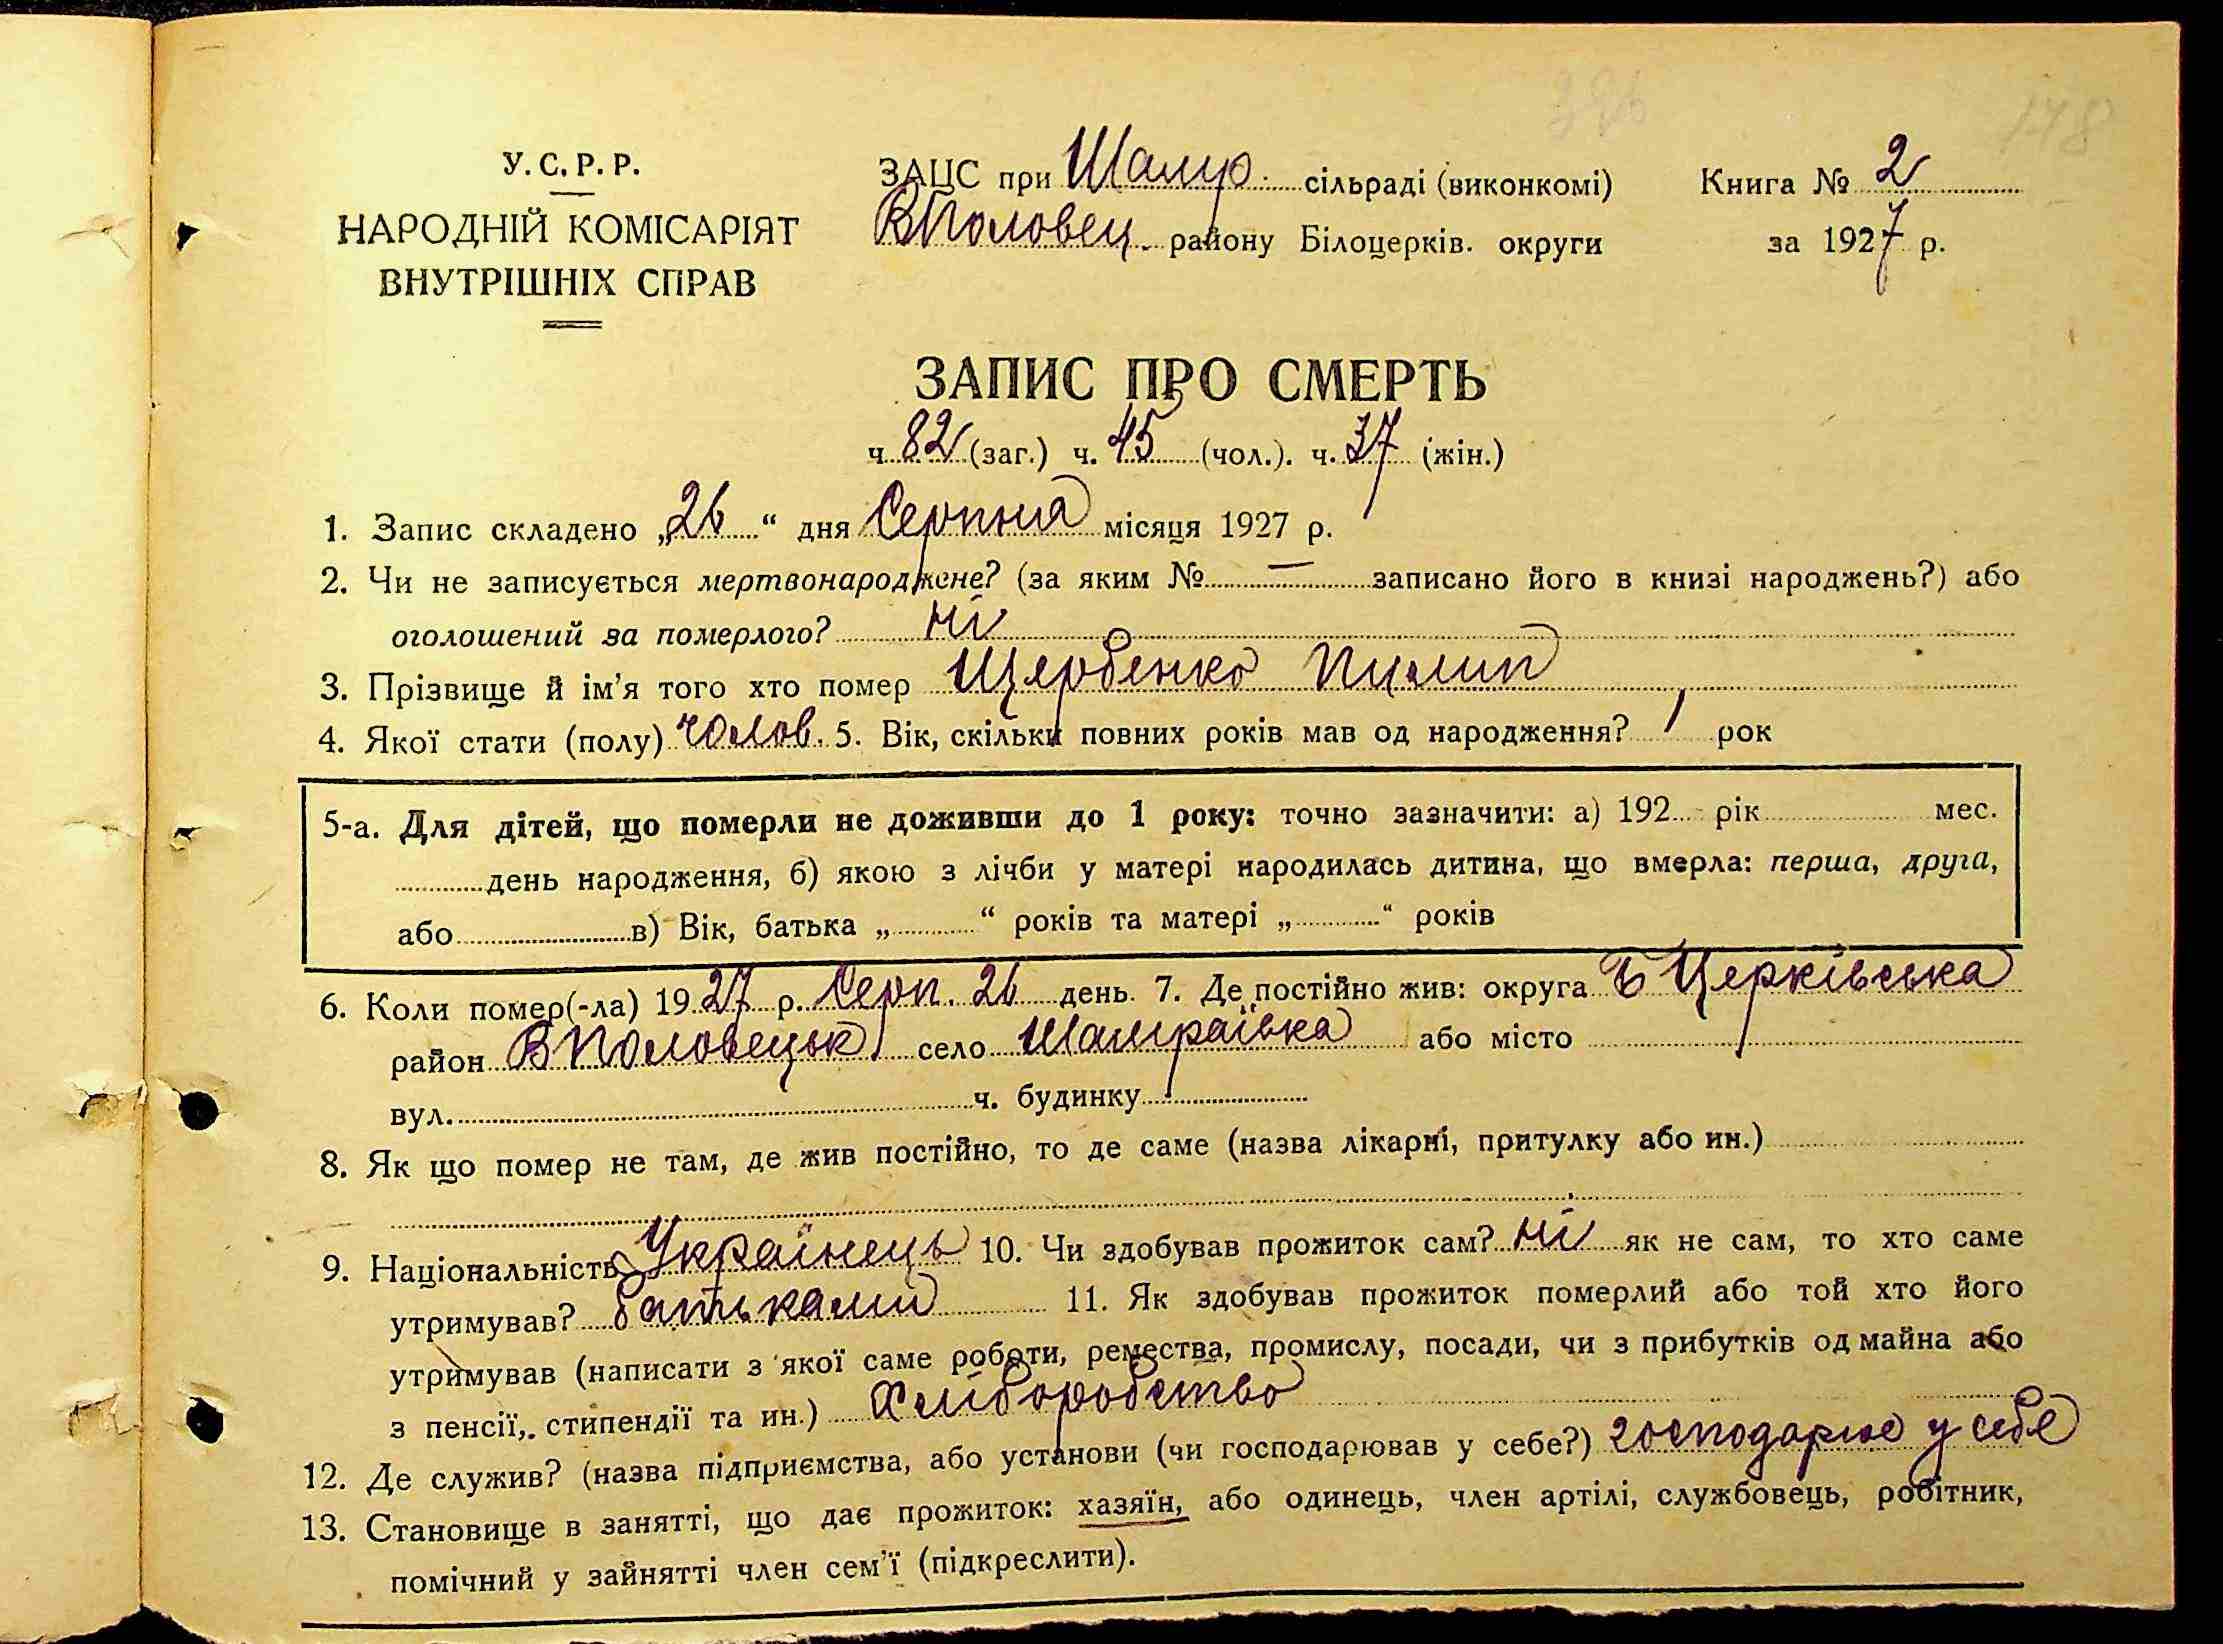 У.С.Р.Р.
НАРОДНІЙ КОМІСАРІЯТ
ВНУТРІШНІХ СПРАВ
ЗАЦС при Шамр. сільраді (виконкомі)
ВПоловец. району Білоцерків. округи
Книга № 2
за 1927 р.
178
ЗАПИС ПРО СМЕРТЬ
ч 82 (заг.) ч. 45 (чол.). ч. 37 (жін.)
1. Запис складено „26“ дня Серпня місяця 1927 р.
2. Чи не записується мертвонароджене? (за яким № — записано його в книзі народжень?) або
оголошений за померлого? ні
3. Прізвище й ім’я того хто помер Щербенко Пилип
4. Якої стати (полу) чолов. 5. Вік, скільки повних років мав од народження? 1 рок
5-а. Для дітей, що померли не доживши до 1 року: точно зазначити: а) 192 рік мес.
день народження, б) якою з лічби у матері народилась дитина, що вмерла: перша, друга,
або в) Вік, батька „ “ років та матері „ “ років
6. Коли помер(-ла) 1927 р. Серп. 26 день. 7. Де постійно жив: округа Б Церківська
район ВПоловецьк село Шамраївка або місто
вул. ч. будинку
8. Як що помер не там, де жив постійно, то де саме (назва лікарні, притулку або ин.)
9. Національність Українець 10. Чи здобував прожиток сам? ні як не сам, то хто саме
утримував? батьками 11. Як здобував прожиток померлий або той хто його
утримував (написати з якої саме роботи, ремества, промислу, посади, чи з прибутків од майна або
з пенсії,. стипендії та ин.) Хліборобство
12. Де служив? (назва підприємства, або установи (чи господарював у себе?) господарює у себе
13. Становище в занятті, що дає прожиток: хазяїн, або одинець, член артілі, службовець, робітник,
помічний у зайнятті член сем’ї (підкреслити).